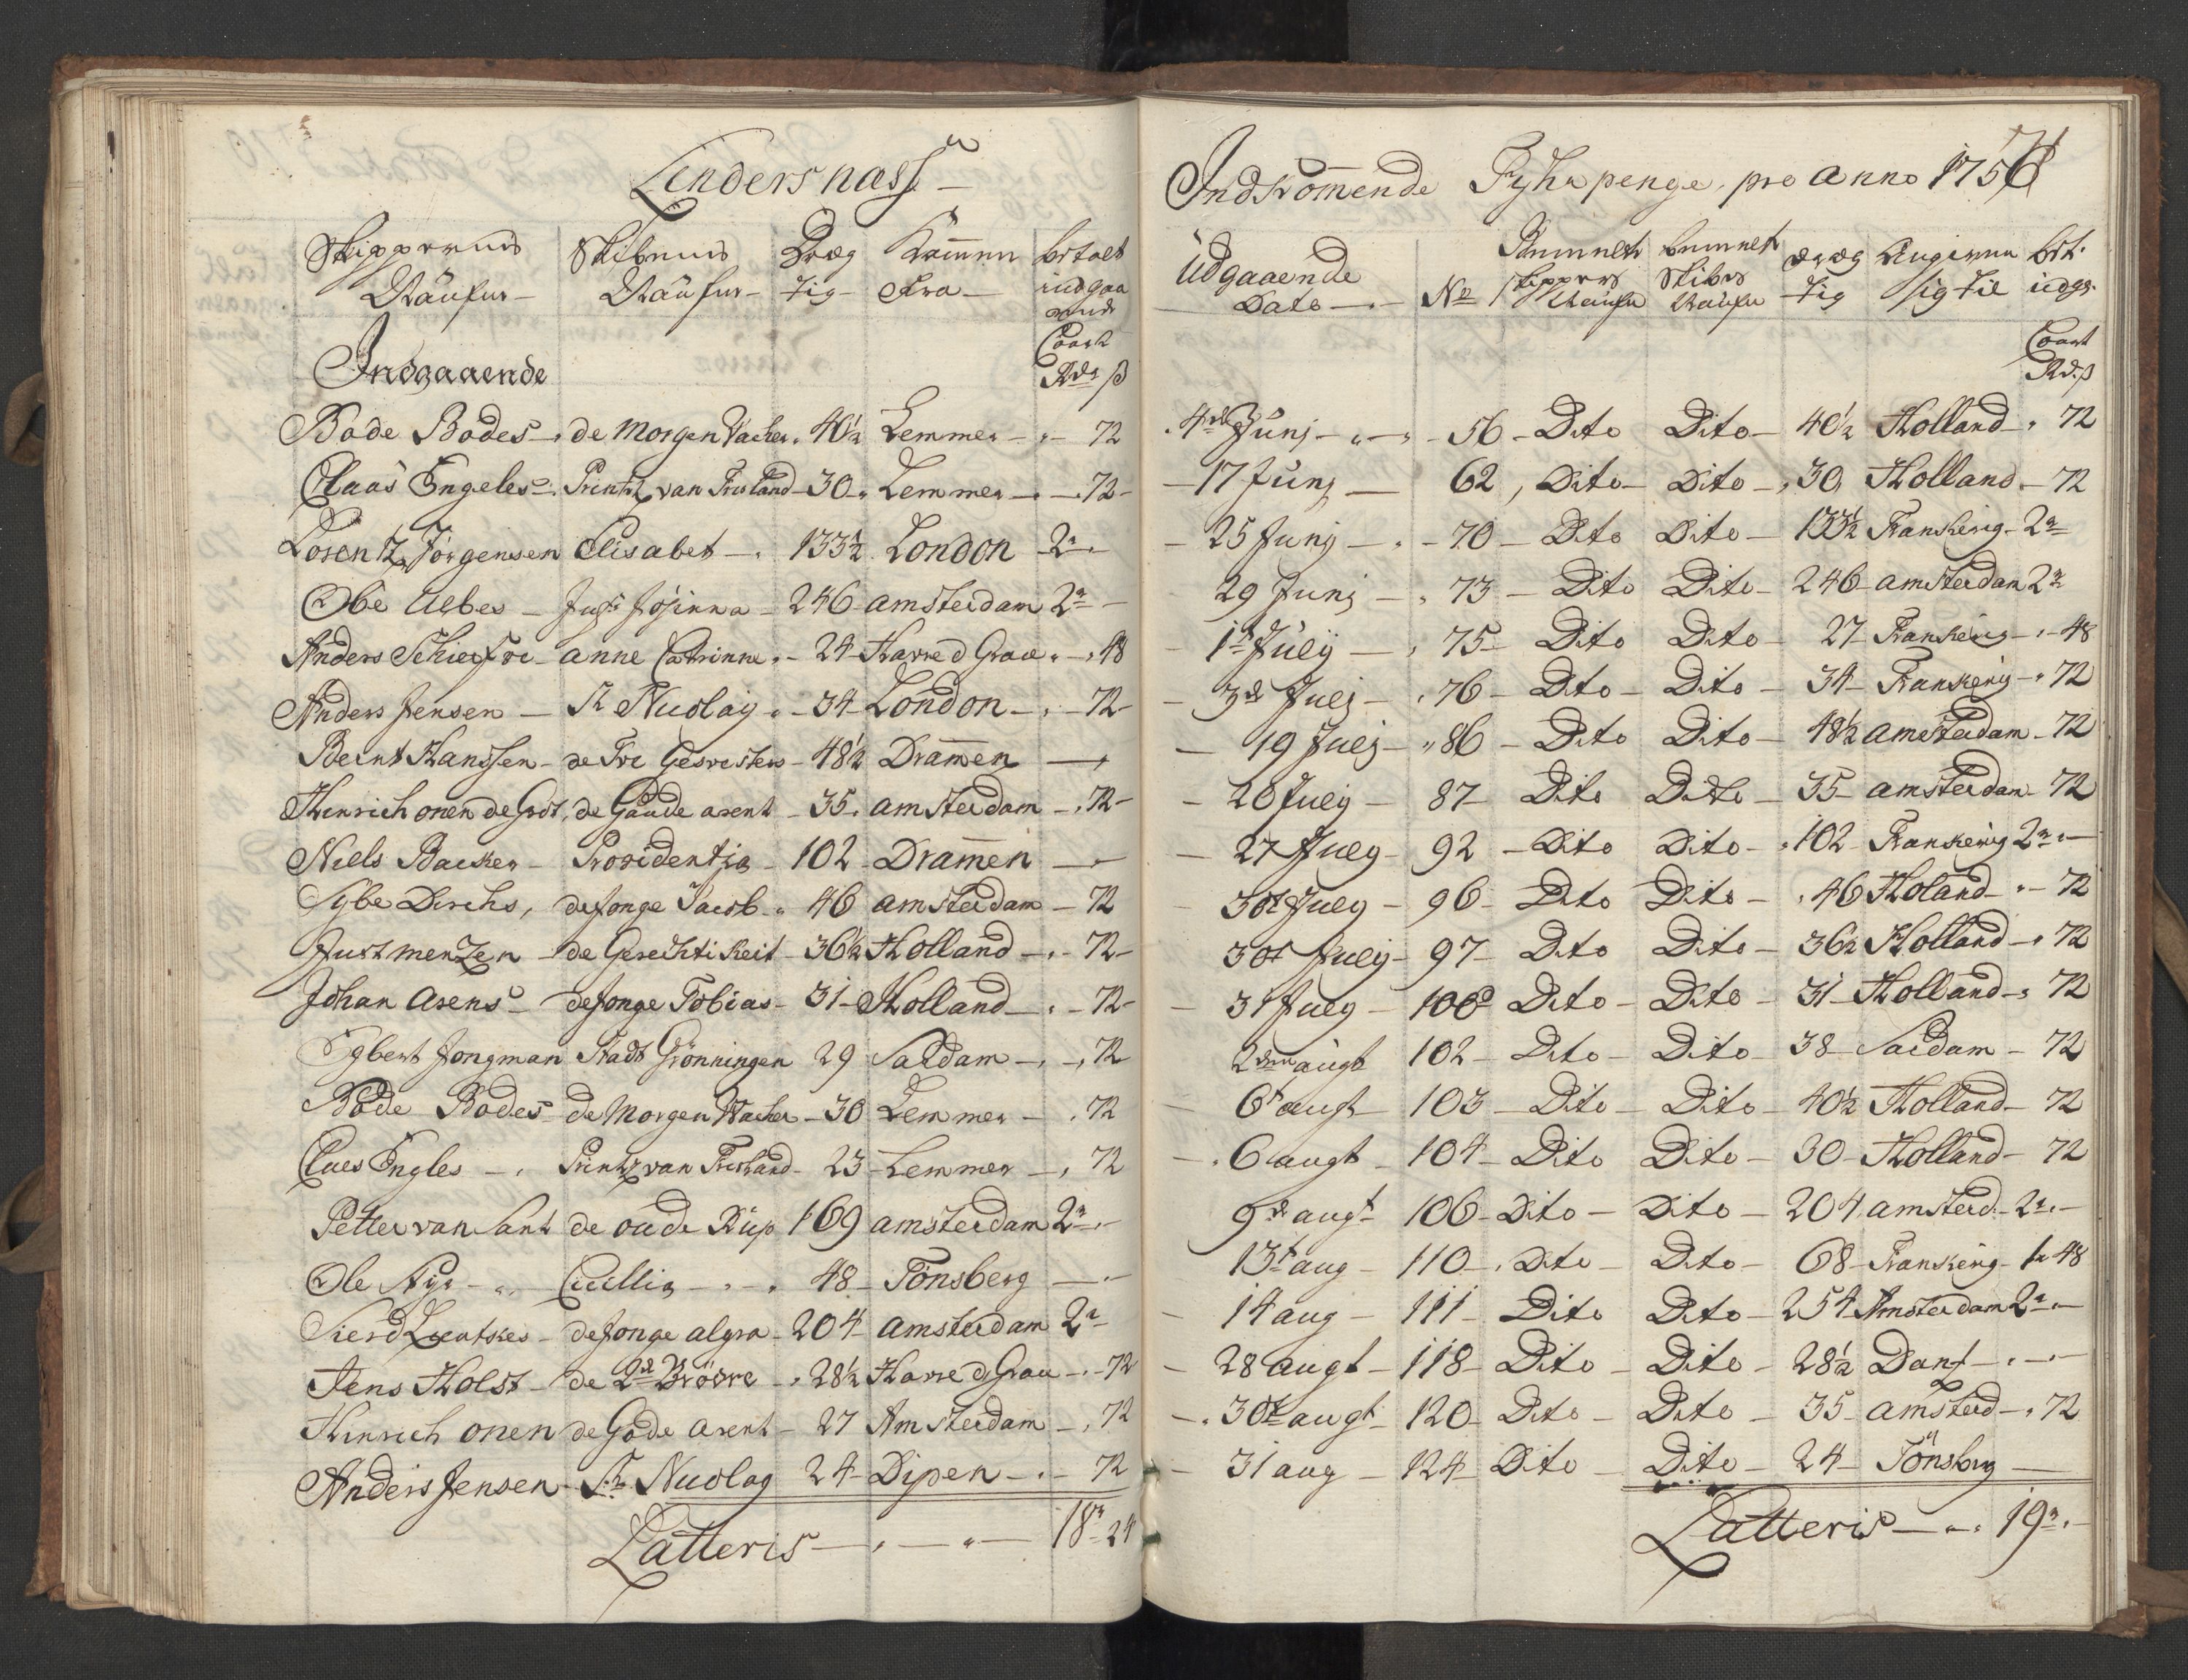 Lindersnæss
Skippernes Naufne Skibenes Naufne Dræg tig Kommen fra betalt indgaa ende
Courant
Indgaaende Rdr ß
Bode Bodes de Morgen Wacher 40½ Lemmer 72
Claas Engeles Printz van Frisland 30 Lemmer 72
Lorentz Jörgensen Elisabet 133½ London 2
Obe Ulbes 246 amsterdam 2
Anders anne Catrinne 24 Havre d Grace 48
Anders Jensen St Nicolaÿ 34 London 72
Bernt Hanssen de Tre Gesvesters 48½ Dramen
Hinrich onen de Grot de Gaude arent 35 amsterdam 72
Niels Backer Providentia 102 Dramen
Sÿbe Dirchs de Jonge Jacob 46 amsterdam 72
Just Mentzen de Gerechtikeit 36½ Holland 72
Johan Arens de Jonge Tobias 31 Holland 72
Egbert Jongman Stadt Grönningen 29 Saldam 72
Bode Bodes de Morgen Wacher 30 Lemmer 72
Claes Engles Printz van Frisland 23 Lemmer 72
Petter van Sant de oude 169 amsterdam 2
Ole Cicillia 48 Tönsberg
Sierd de Jonge algra 204 amsterdam 2
Jens Holst de 2de Brödre 28½ Havre d Grace 72
Hinrich onen de Gode arent 27 Amsterdam 72
Anders Jensen St Nicolaÿ 24 Dipen 72
Latteris 18 24
71
Indkomende Fyhrpenge pro anno 1756
Udgaaende Dato No Skippers Naufn Skibes Naufn dræg tig Angiven sig til bet. udg.
Courant
Rd. ß
4de Junj 56 Dito Dito 40½ Holland 72
17 Junj 62 Dito Dito 30 Holland 72
25 Junj 70 Dito Dito 133½ Frankerig 2
29 Junj 73 Dito Dito 246 amsterdam 2
1t Julÿ 75 Dito Dito 27 Frankerig 48
3de Julj 76 Dito Dito 34 Frankerig 72
19 Julj 86 Dito Dito 48½ amsterdam 72
20 Julÿ 87 Dito Dito 35 amsterdam 72
27 Julÿ 92 Dito Dito 102 Frankerig 2
30t Julÿ 96 Dito Dito 46 Holand 72
30t Julÿ 97 Dito Dito 36½ Holland 72
31 Julÿ 100 Dito Dito 31 Holland 72
2den augt 102 Dito Dito 38 Saldam 72
6t augt 103 Dito Dito 40½ Holland 72
6 augt 104 Dito Dito 30 Holland 72
9de augt 106 Dito Dito 204 amsterd. 2
13t aug 110 Dito Dito 68 Frankerig 1 48
14 aug 111 Dito Dito 254 Amsterdam 2
28 augt 118 Dito Dito 28½ Dantz
30t augt 120 Dito Dito 35 amsterd 72
31 aug 124 Dito Dito 24 Tönsberg
Latteris 19